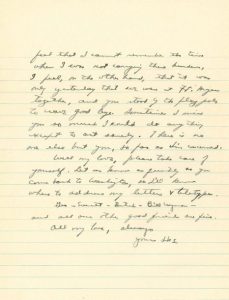 feel that I cannot remember the time
when I was not carrying these burdens,
I feel, on the other hand, that it was
only yesterday that we were at Ft. Myer
together, and you stood by the
to wave good bye. Sometimes I miss
you so much I could do anything
except to act sanely. There is no
one else but you, so far as I'm concerned.
Lots my love, please take care of
yourself. Let me know as quickly as you
come back to Washington, so I'll know
where to address my letters & teletypes.
Bea - Everett - Butch - 
and all our other good friends are fine.
All my love, always
Yours